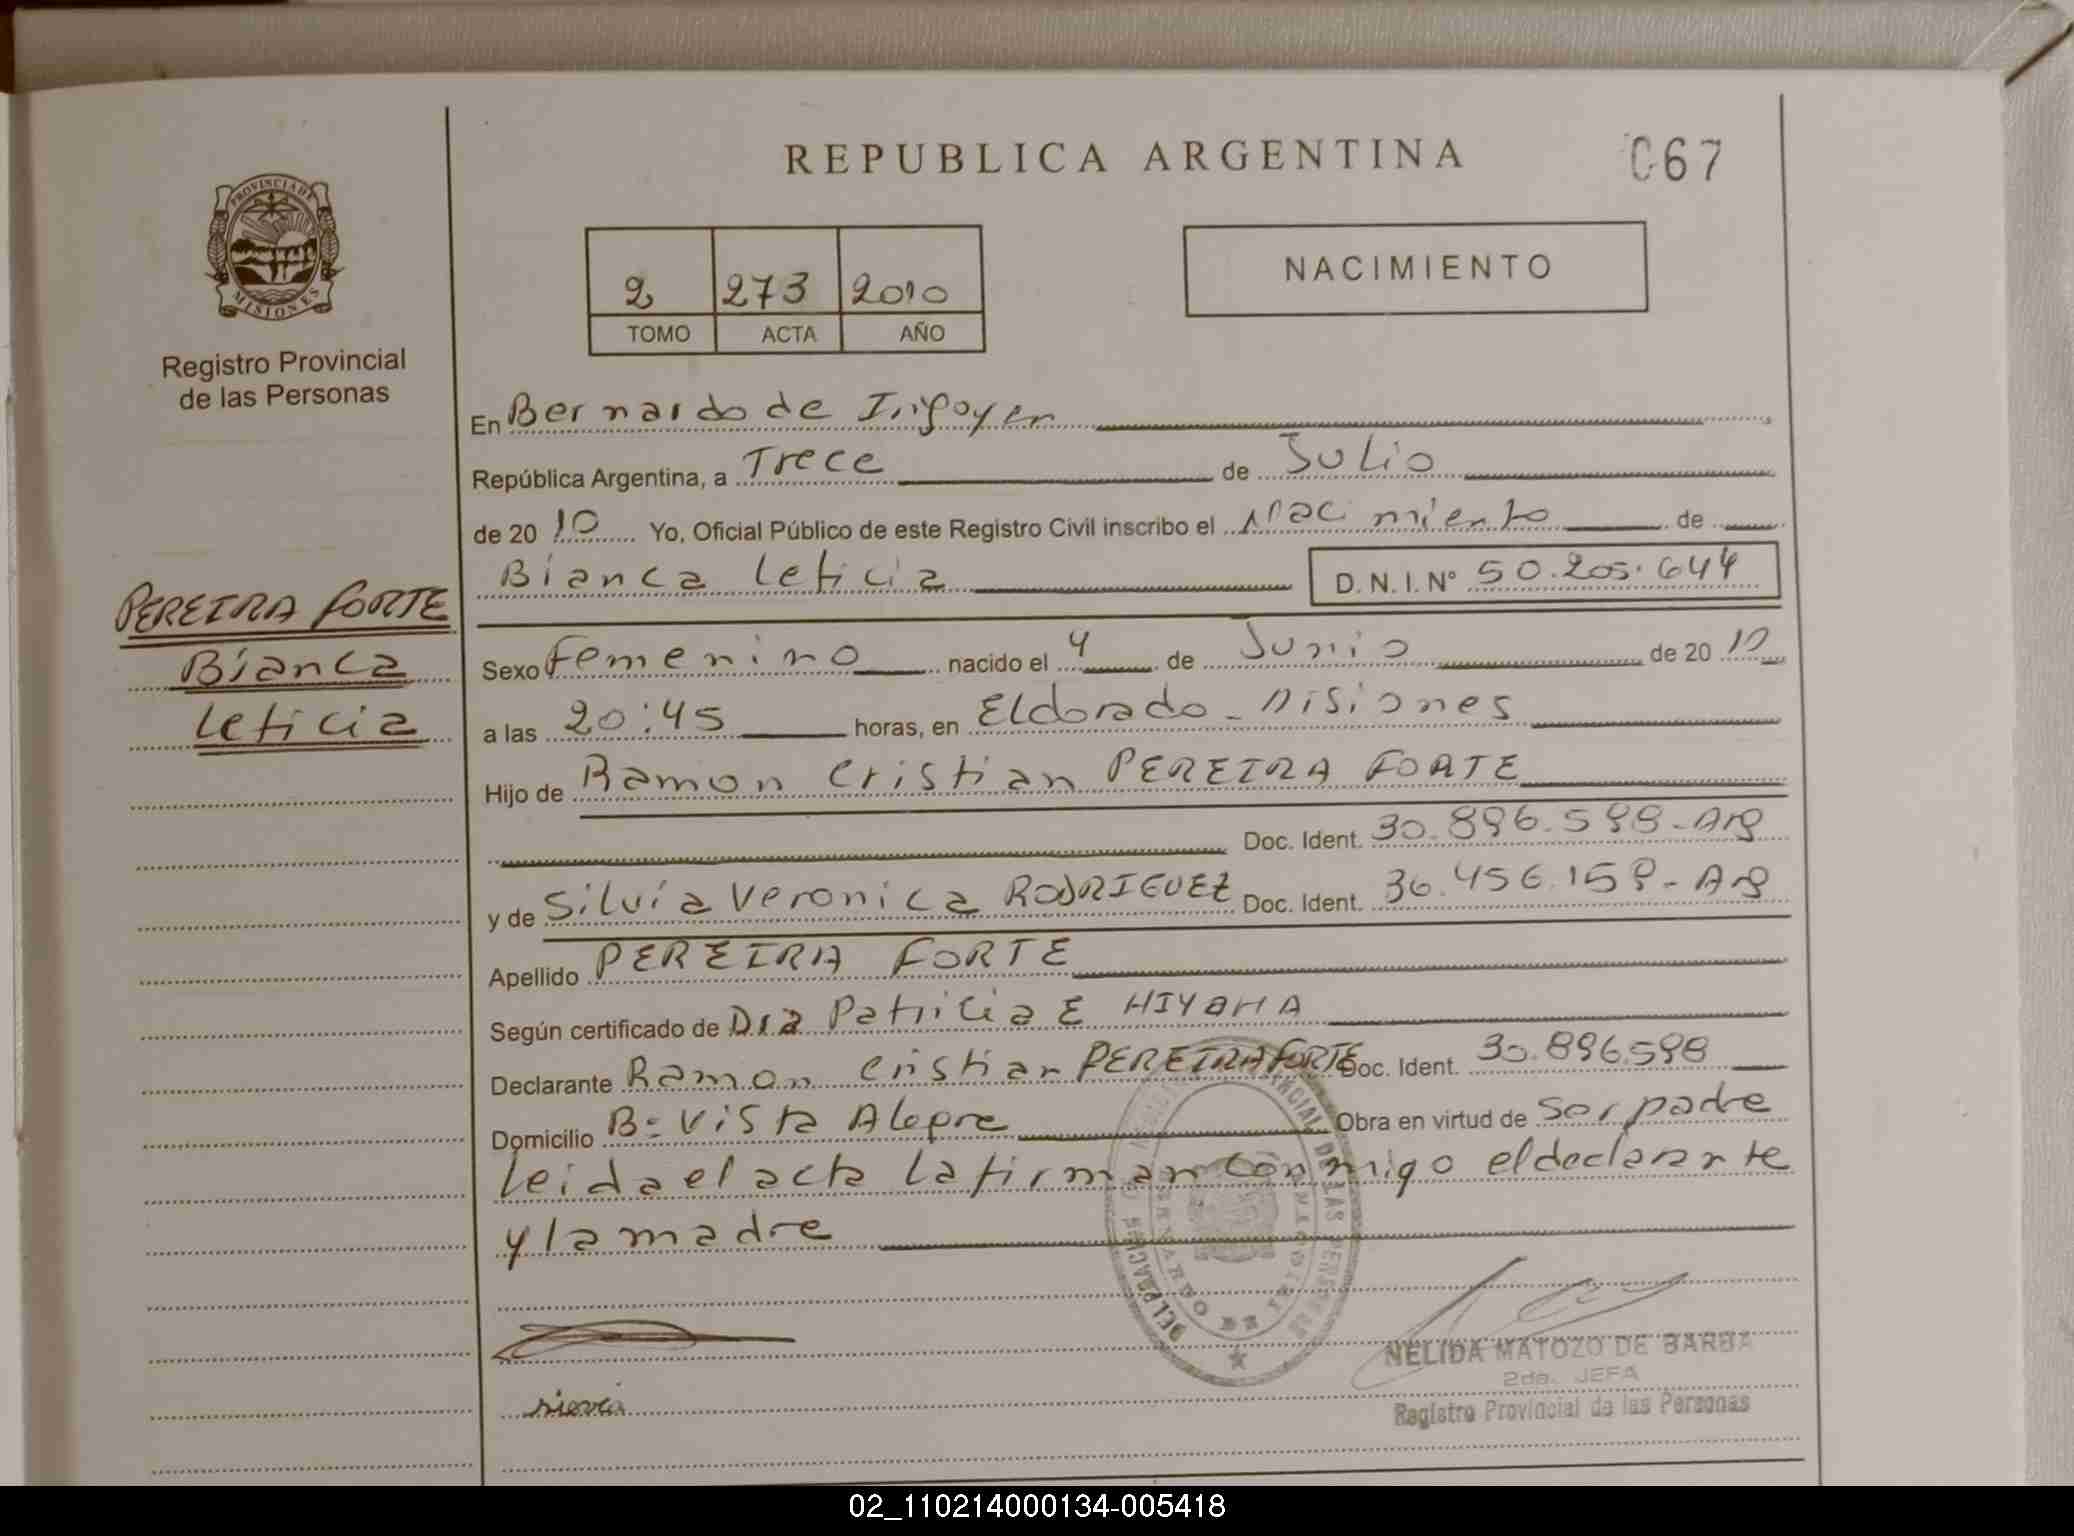 REPUBLICA ARGENTINA
067
PROVINCIA DE MISIONES
Registro Provincial
de las Personas
2 273 2010
TOMO ACTA AÑO
NACIMIENTO
En Bernardo de Irigoyen
República Argentina, a Trece de Julio
de 2010 Yo, Oficial Público de este Registro Civil inscribo el Nacimiento de
Bianca Leticia D. N. I. N° 50.205.644
PEREIRA FORTE
Bianca
Leticia
Sexo Femenino nacido el 4 de Junio de 2010
a las 20:45 horas, en Eldorado - Misiones
Hijo de Ramon Cristian PEREIRA FORTE
Doc. Ident. 30.896.598-Arg
y de Silvia Veronica RODRIGUEZ Doc. Ident. 36.456.159-Arg
Apellido PEREIRA FORTE
Según certificado de Dra Patricia E
Declarante Ramon Cristian PEREIRA FORTE Doc. Ident. 30.896.598
Domicilio B= Vista Alegre Obra en virtud de Ser padre
Leida el acta la firman conmigo el declarante
y la madre
NELIDA MATOZO DE BARBA
2da. JEFA
Registro Provincial de las Personas
02_110214000134-005418